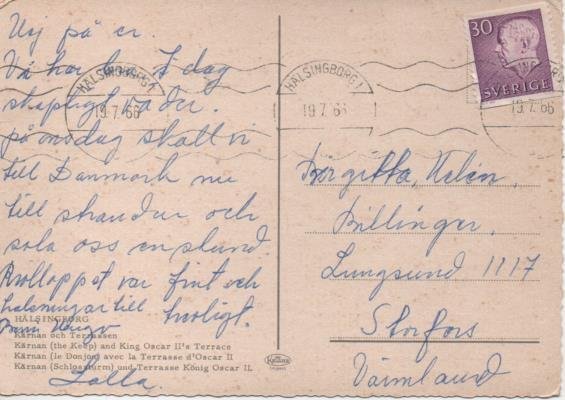 Usj på er.
Vi har bra I dag
skapligt väder.
på onsdag skall vi
till Danmark nu
till stranden och
sola oss en stund.
Brolloppet var fint och
hälsningar till troligt.
HÄLSINGBORG
Kärnan och Terrassen
Kärnan (the Keep) and King Oscar II's Terrace
Kärnan (le Donjon) avec la Terrasse d'Oscar II
Kärnan (Schlossturm) und Terrasse König Oscar II.
Lolla.
30
SVERIGE
HÄLSINGBORG 1
19.7.66
HÄLSINGBORG 1
19.7.66
19.7.66
Birgitta, Helén,
Billinger.
Lungsund 1117
Storfors
Värmland